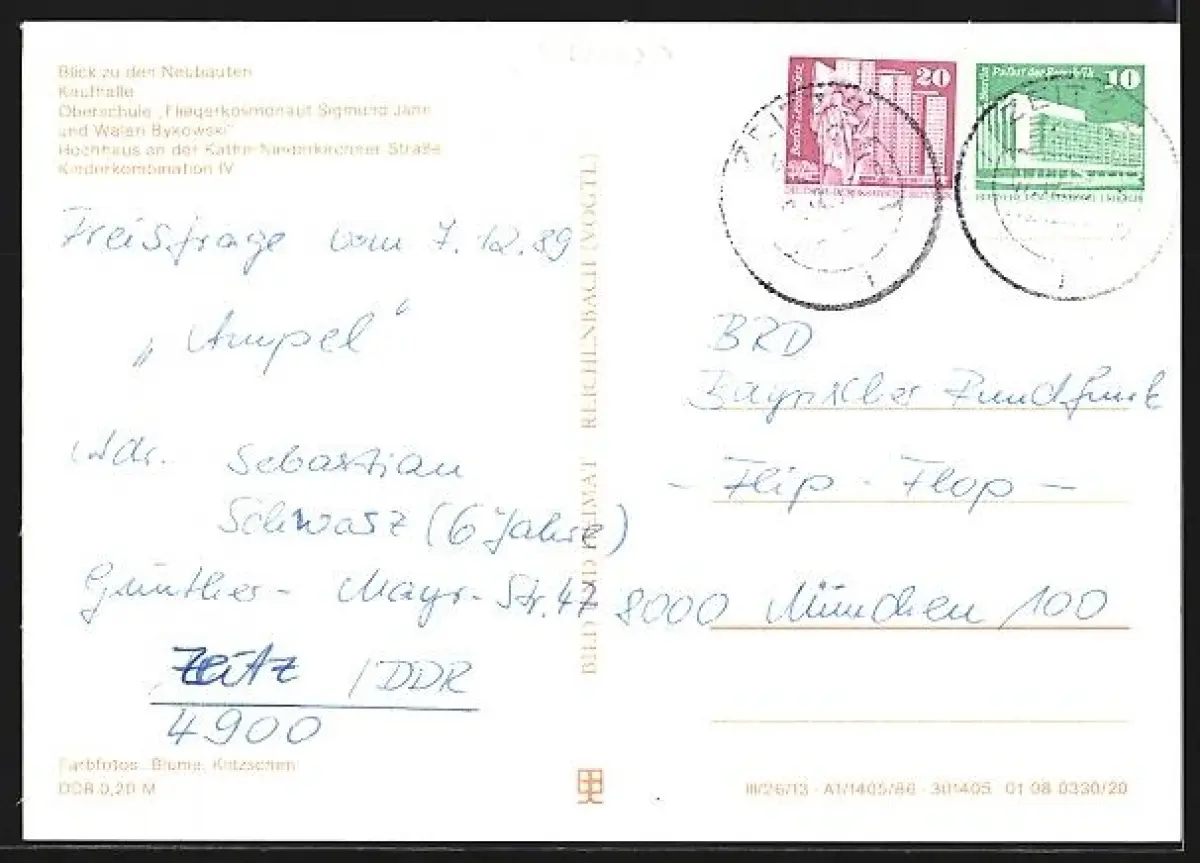 Blick zu den Neubauten
Kaufhalle
Oberschule „Fliegerkosmonaut Sigmund Jähn
und Waleri Bykowski"
Hochhaus an der Käthe-Niederkirchner-Straße
Kinderkombination IV
Preisfrage vom 7.12.89
„Ampel"
Adr. Sebastian
Schwarz (6 Jahre)
Günther-Mayr-Str. 47
Zeitz / DDR
4900
Farbfotos: Blume, Kretzschen
DDR 0,20 M
BILD UND HEIMAT REICHENBACH (VOGTL)
20
10
Palast der Republik
Berlin
ZEITZ
BRD
Bayrischer Rundfunk
- Flip - Flop -
8000 München 100
III/26/13 · A1/1405/86 · 301405 01 08 0330/20